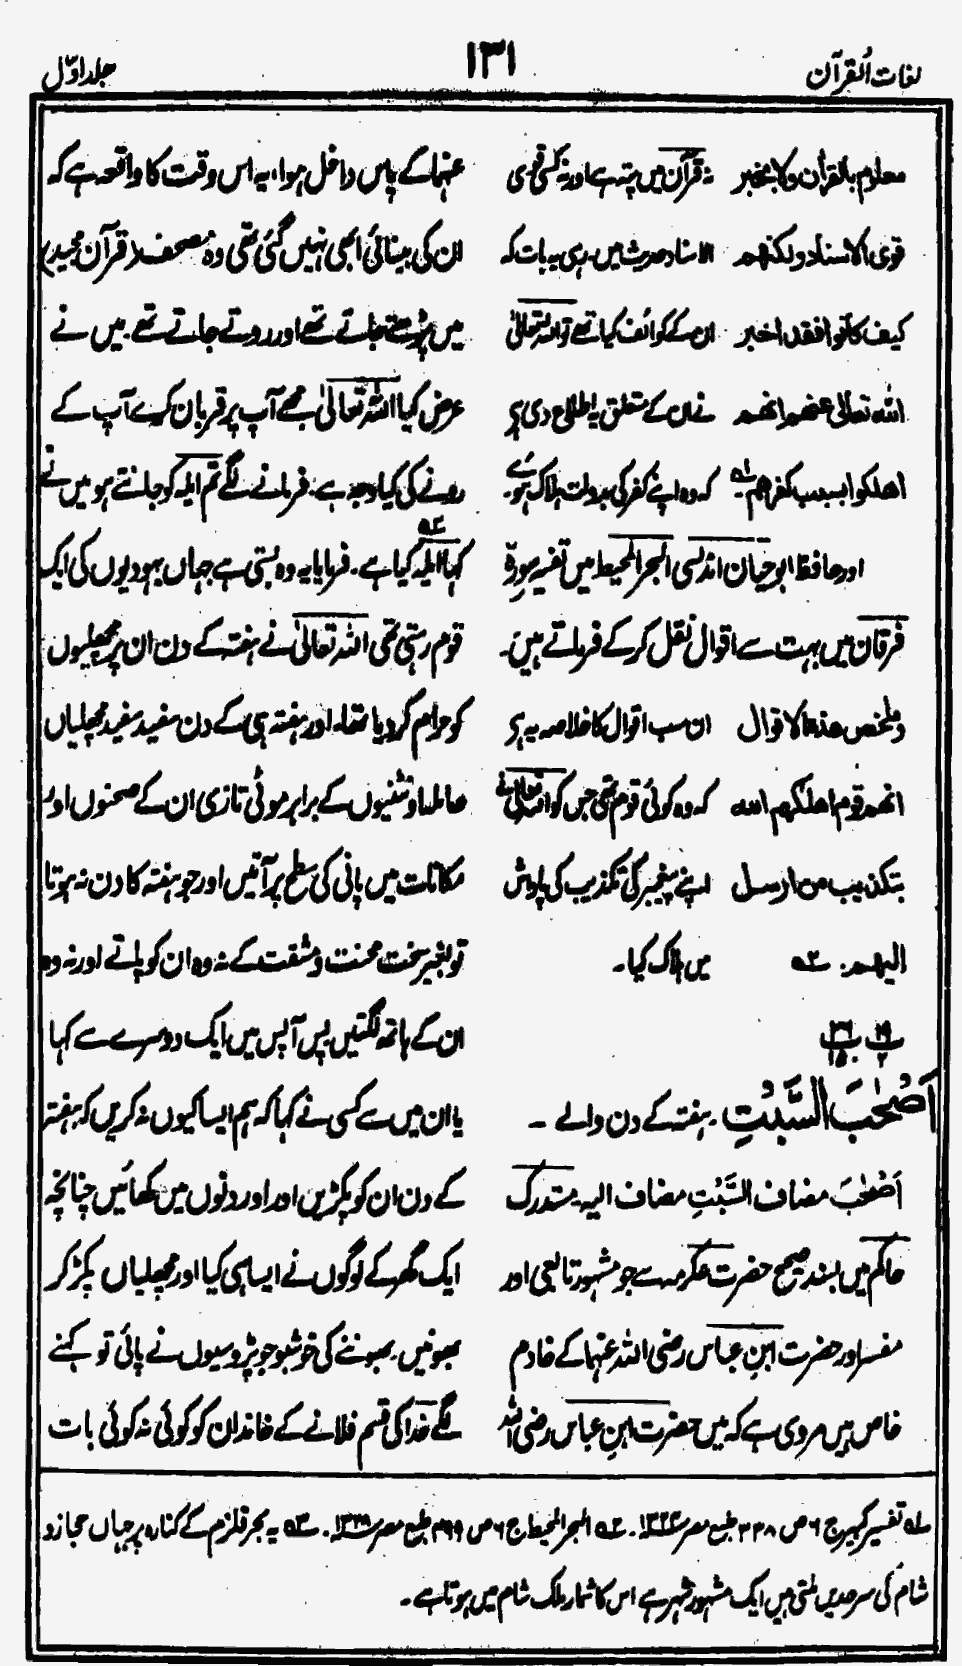 لغات القرآن
۱۳۱
جلد اوّل
معلوم بالقرآن ولا بخبر نہ قرآن میں پتہ ہے اور نہ کسی قوی
قوی الاسناد ولکنهم الاسناد حدیث میں، رہی یہ بات کہ
کیف کانوا فقد اخبر ان کے کوائف کیا تھے تو اللہ تعالیٰ
الله تعالى عنهم انهم نے ان کے متعلق یہ اطلاع دی ہے
اهلکوا بسبب کفرهم۔ لہ کہ وہ اپنے کفر کی بدولت ہلاک ہوئے۔
اور حافظ ابو حیان اندلسی البحر المحیط میں تفسیر سورۂ
فرقان میں بہت سے اقوال نقل کر کے فرماتے ہیں۔
وملخص هذه الاقوال ان سب اقوال کا خلاصہ یہ ہے
انهم قوم اهلكهم الله کہ وہ کوئی قوم تھی جس کو اللہ تعالیٰ نے
بتکذیب من ارسل اپنے پیغمبر کی تکذیب کی پاداش
الیهم۔ ۲ه میں ہلاک کیا۔
أَصْحٰبَ السَّبْتِ۔ ہفتہ کے دن والے ۔
أَصْحٰبَ مضاف السَّبْتِ مضاف الیہ مستدرک
حاکم میں بسند صحیح حضرت عکرمہ سے جو مشہور تابعی اور
مفسر اور حضرت ابن عباس رضی اللہ عنہما کے خادم
خاص ہیں مروی ہے کہ میں حضرت ابن عباس رضی اللہ
عنہا کے پاس داخل ہوا، یہ اس وقت کا واقعہ ہے کہ
ان کی بینائی ابھی نہیں گئی تھی وہ مصحف (قرآن مجید)
میں پڑھتے جاتے تھے اور روتے جاتے تھے۔ میں نے
عرض کیا اللہ تعالیٰ مجھے آپ پر قربان کرے آپ کے
رونے کی کیا وجہ ہے، فرمانے لگے تم ایلہ کو جانتے ہو میں نے
کہا ایلہ کیا ہے۔ ۳ه فرمایا یہ وہ بستی ہے جہاں یہودیوں کی ایک
قوم رہتی تھی اللہ تعالیٰ نے ہفتہ کے دن ان پر مچھلیوں
کو حرام کر دیا تھا۔ اور ہفتہ ہی کے دن سفید سفید مچھلیاں
حاملہ اونٹنیوں کے برابر موٹی تازی ان کے صحنوں اور
مکانات میں پانی کی سطح پر آتیں اور جو ہفتہ کا دن نہ ہوتا
تو بغیر سخت محنت و مشقت کے نہ وہ ان کو پاتے اور نہ وہ
ان کے ہاتھ لگتیں پس آپس میں ایک دوسرے سے کہا
یا ان میں سے کسی نے کہا کہ ہم ایسا کیوں نہ کریں کہ ہفتہ
کے دن ان کو پکڑیں اور اور دنوں میں کھائیں چنانچہ
ایک گھر کے لوگوں نے ایسا ہی کیا اور مچھلیاں پکڑ کر
بھونیں۔ بھوننے کی خوشبو جو پڑوسیوں نے پائی تو کہنے
لگے خدا کی قسم فلانے کے خاندان کو کوئی نہ کوئی بات
لہ تفسیر کبیر ج ۶ ص ۳۳۸ طبع مصر ۱۳۲۴۔ ۲ه البحر المحیط ج ۶ ص ۴۹۹ طبع مصر ۱۳۲۸۔ ۳ه یہ بحر قلزم کے کنارہ پر جہاں حجاز و
شام کی سرحدیں ملتی ہیں ایک مشہور شہر ہے اس کا شمار ملک شام میں ہوتا ہے۔